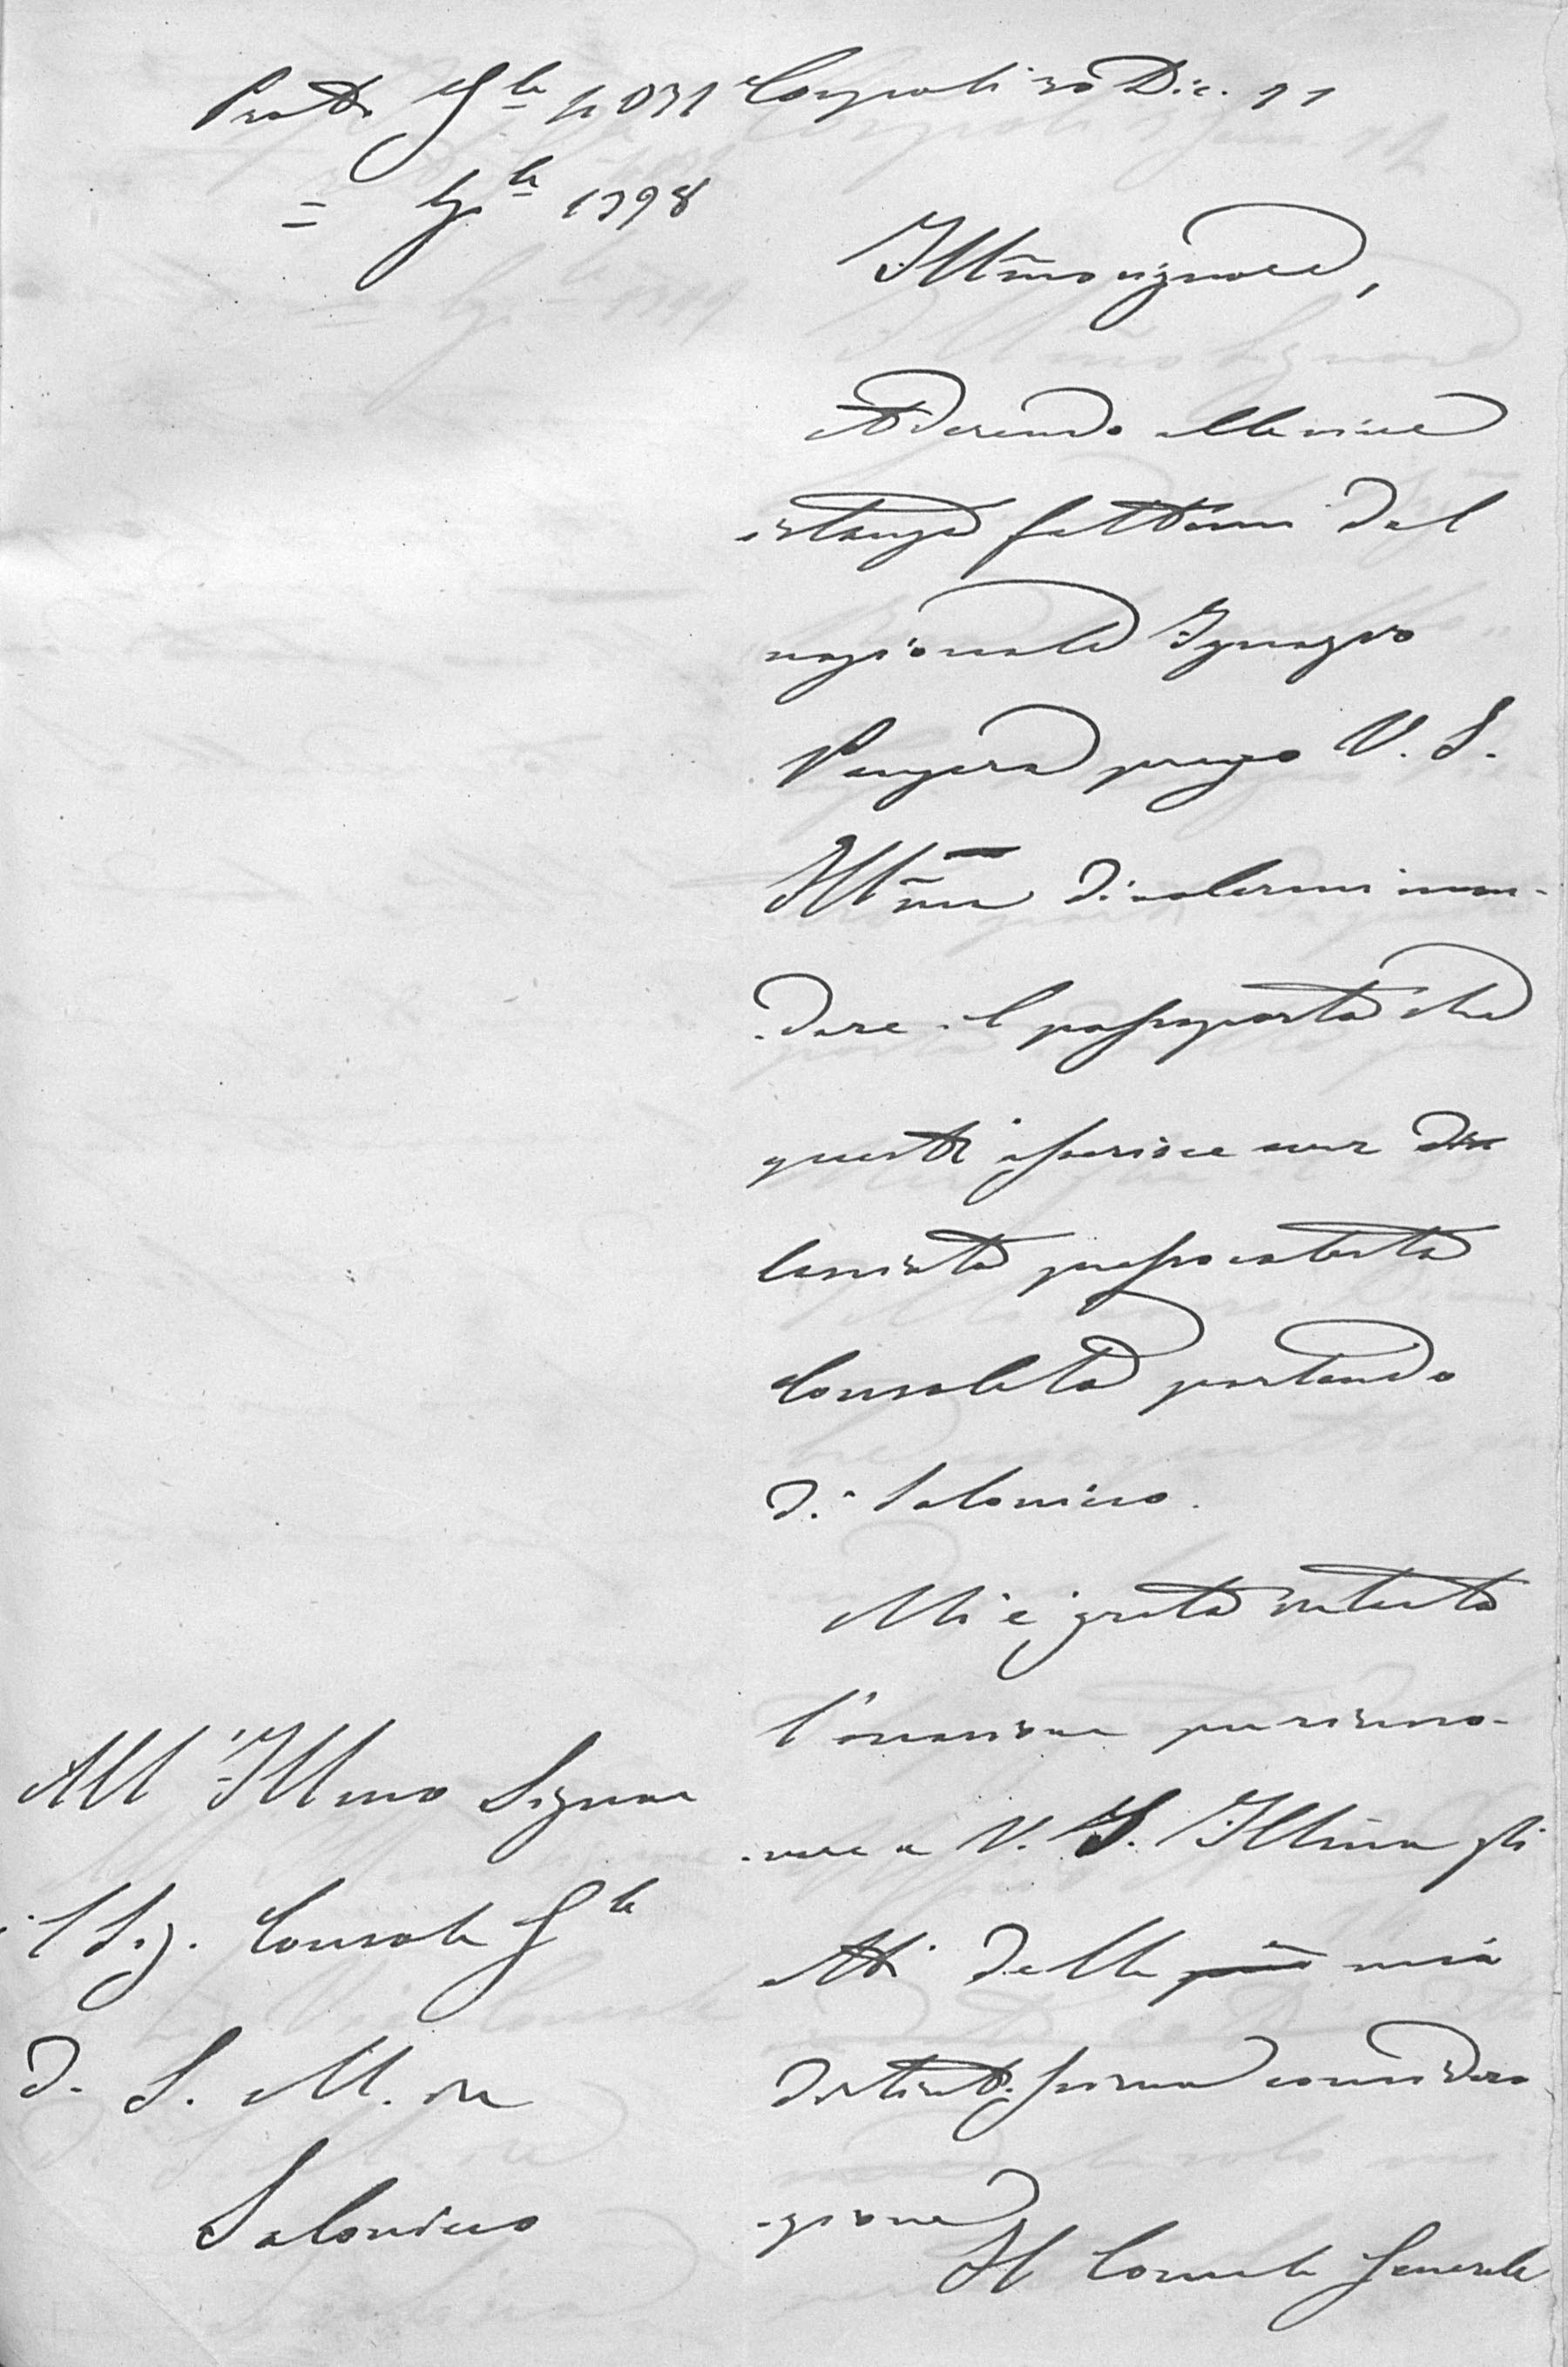 Prot° Gle 4031 Cospoli 30 Dic. 71
= Sple 1398
Illmo signore,
Aderendo alle vive
istanze fattemi dal
nazionale Ignazio
prego V. S.
Illma di volermi man-
-dare il passaporto che
questi asserisce aver
lasciato presso codesto
Consolato partendo
di Salonicco.
Mi è grata intanto
l'occasione per rinno-
-vare a V. S. Illma gli
atti della mia
distintissima considera
-zione
Il Console Generale
All' Illmo Signor
il Sig. Console Gle
di S. M. in
Salonicco